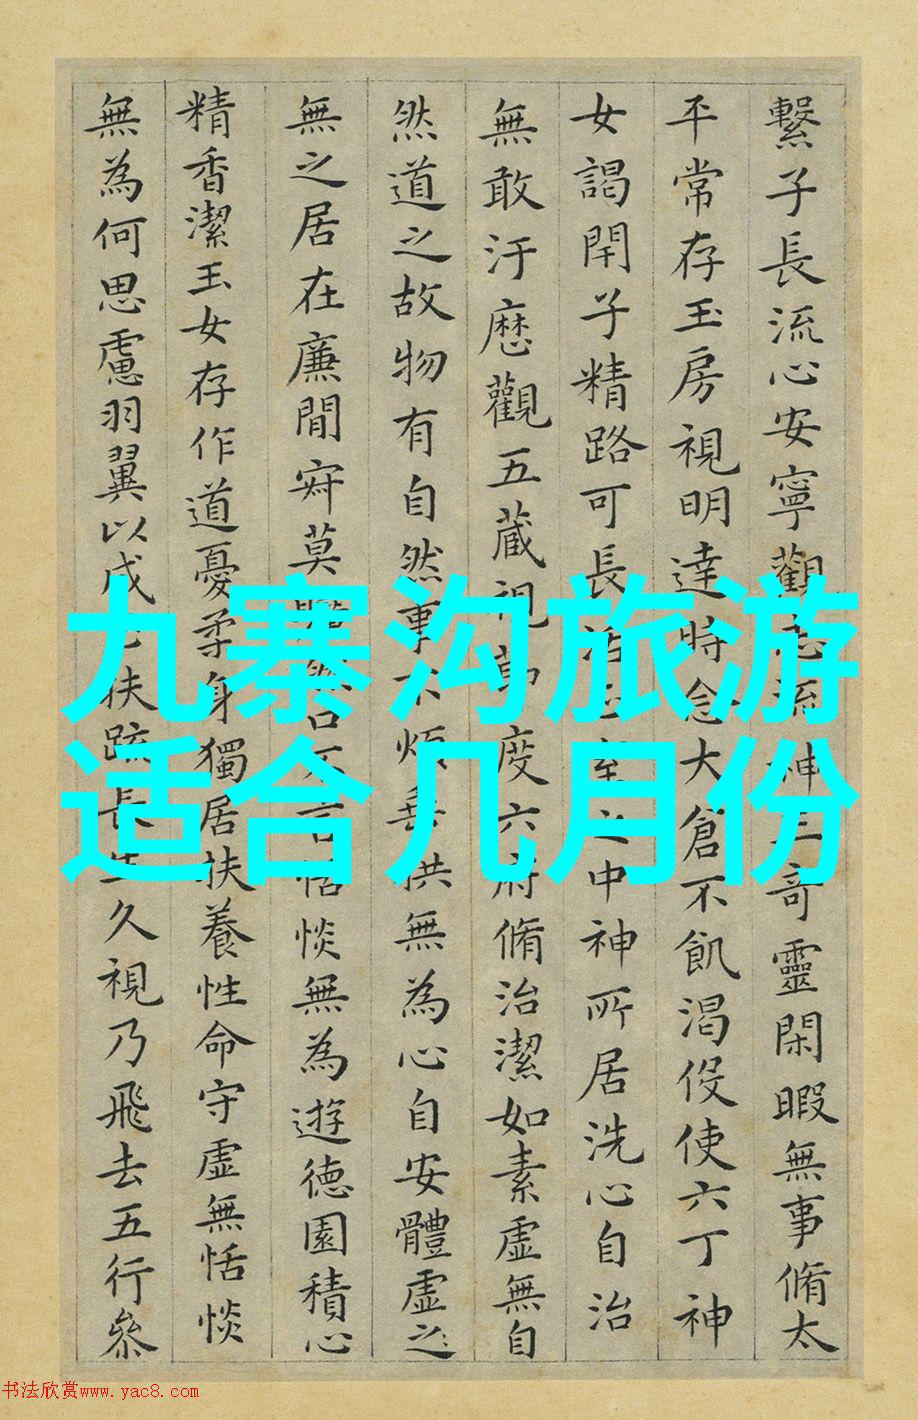 繫子長流心安寧觀志流神三奇靈閑暇無事脩太
平常存玉房視明達時念大倉不飢渴伇使六丁神
女謁閇子精路可長活正室之中神所居洗心自治
無敢汙歷觀五藏視節度六府脩治潔如素虛無自
然道之故物有自然事不煩垂拱無為心自安體虛之
無之居在廉間寂莫曠然口不言恬惔無為遊德園積心
精香潔玉女存作道憂柔身獨居扶養性命守虛無恬惔
無為何思慮羽翼以成正扶疏長生久視乃飛去五行參
九寨沟旅游
适合几月份
书法欣赏www.yac8.com